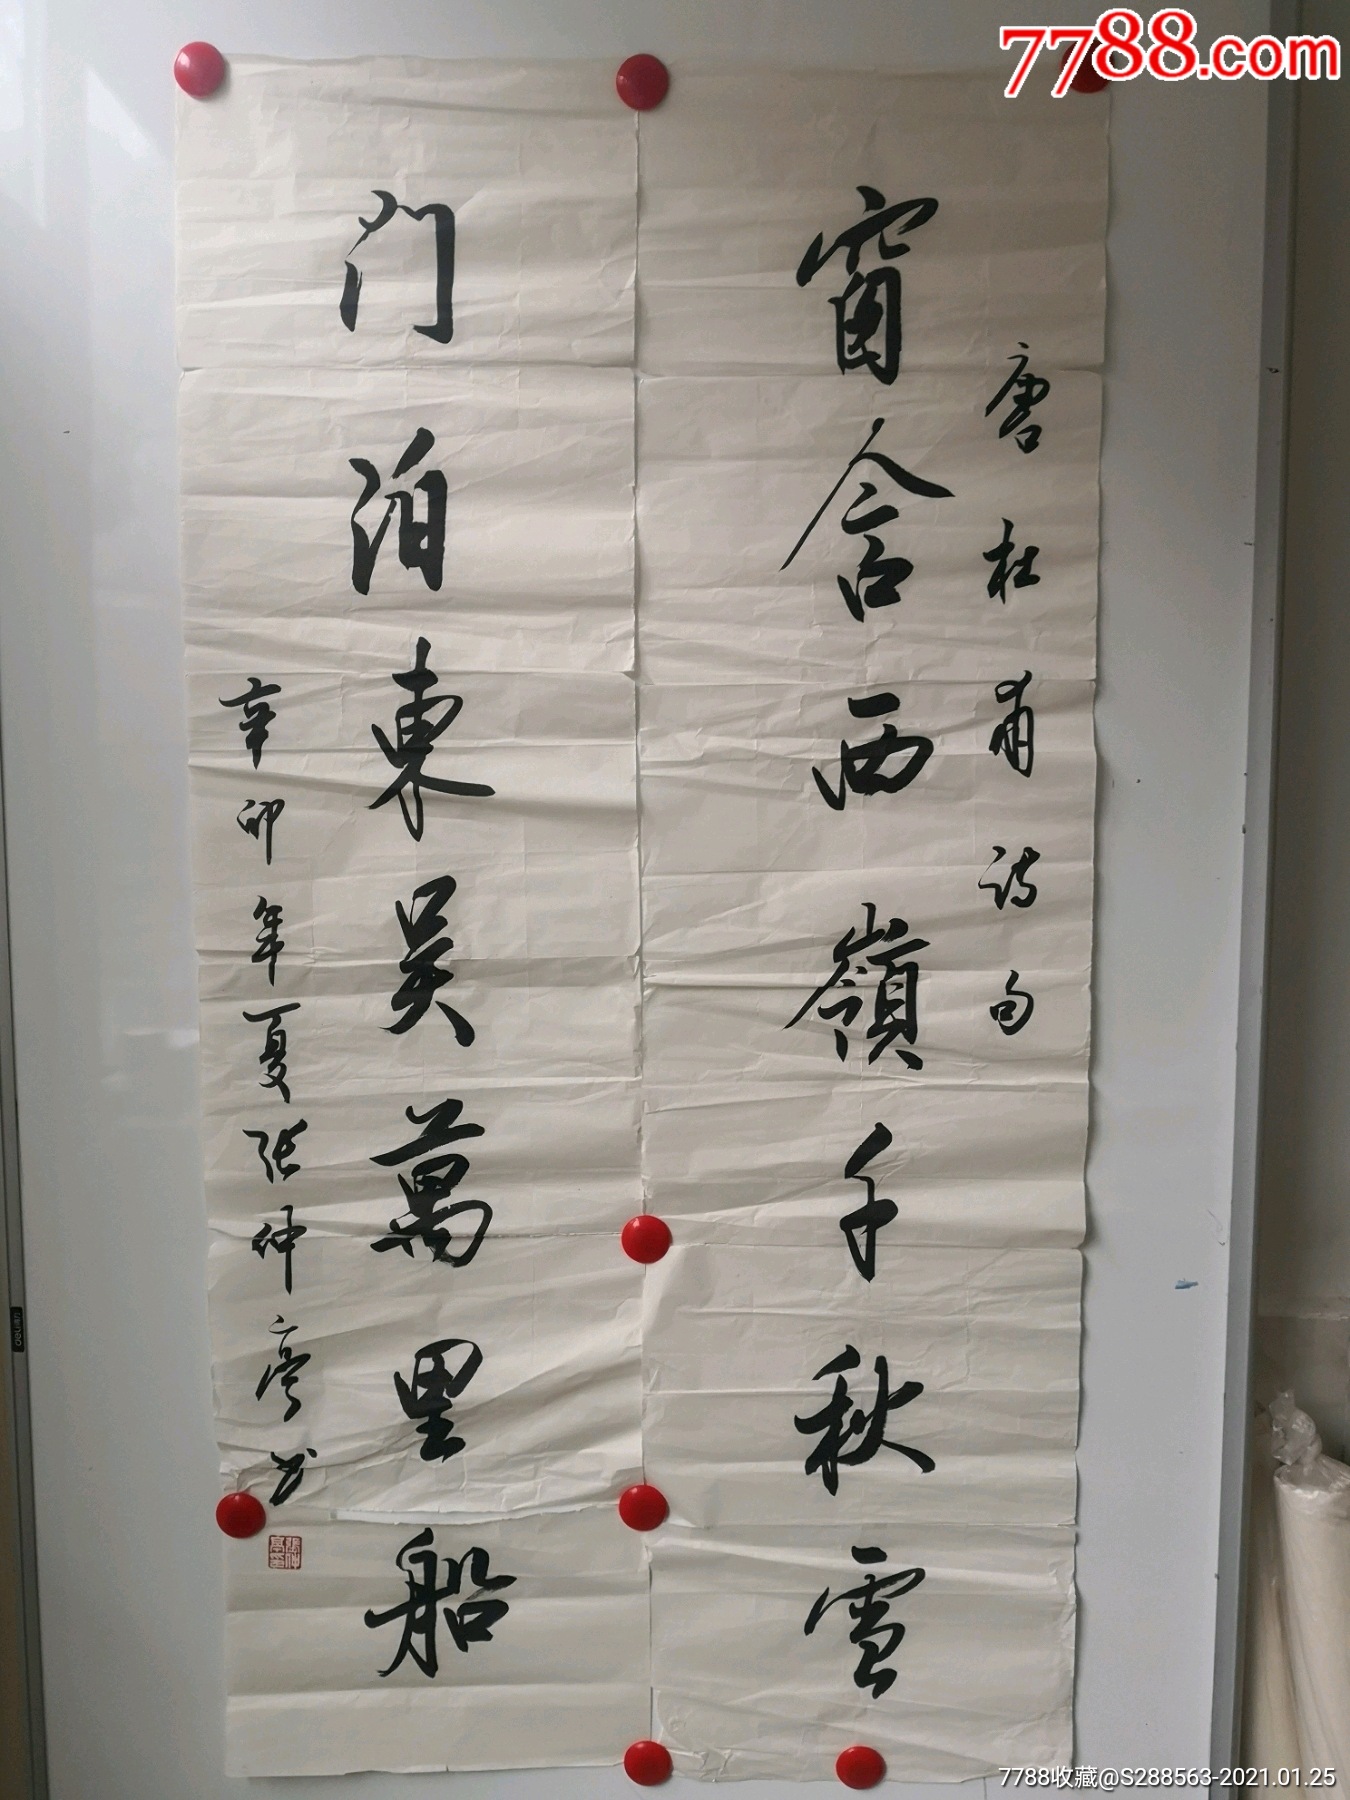 7788.com
唐杜甫诗句
窗含西嶺千秋雪
门泊東吴萬里船
辛卯年夏张仲亭书
張仲亭印
deli得力
7788收藏@S288563-2021.01.25